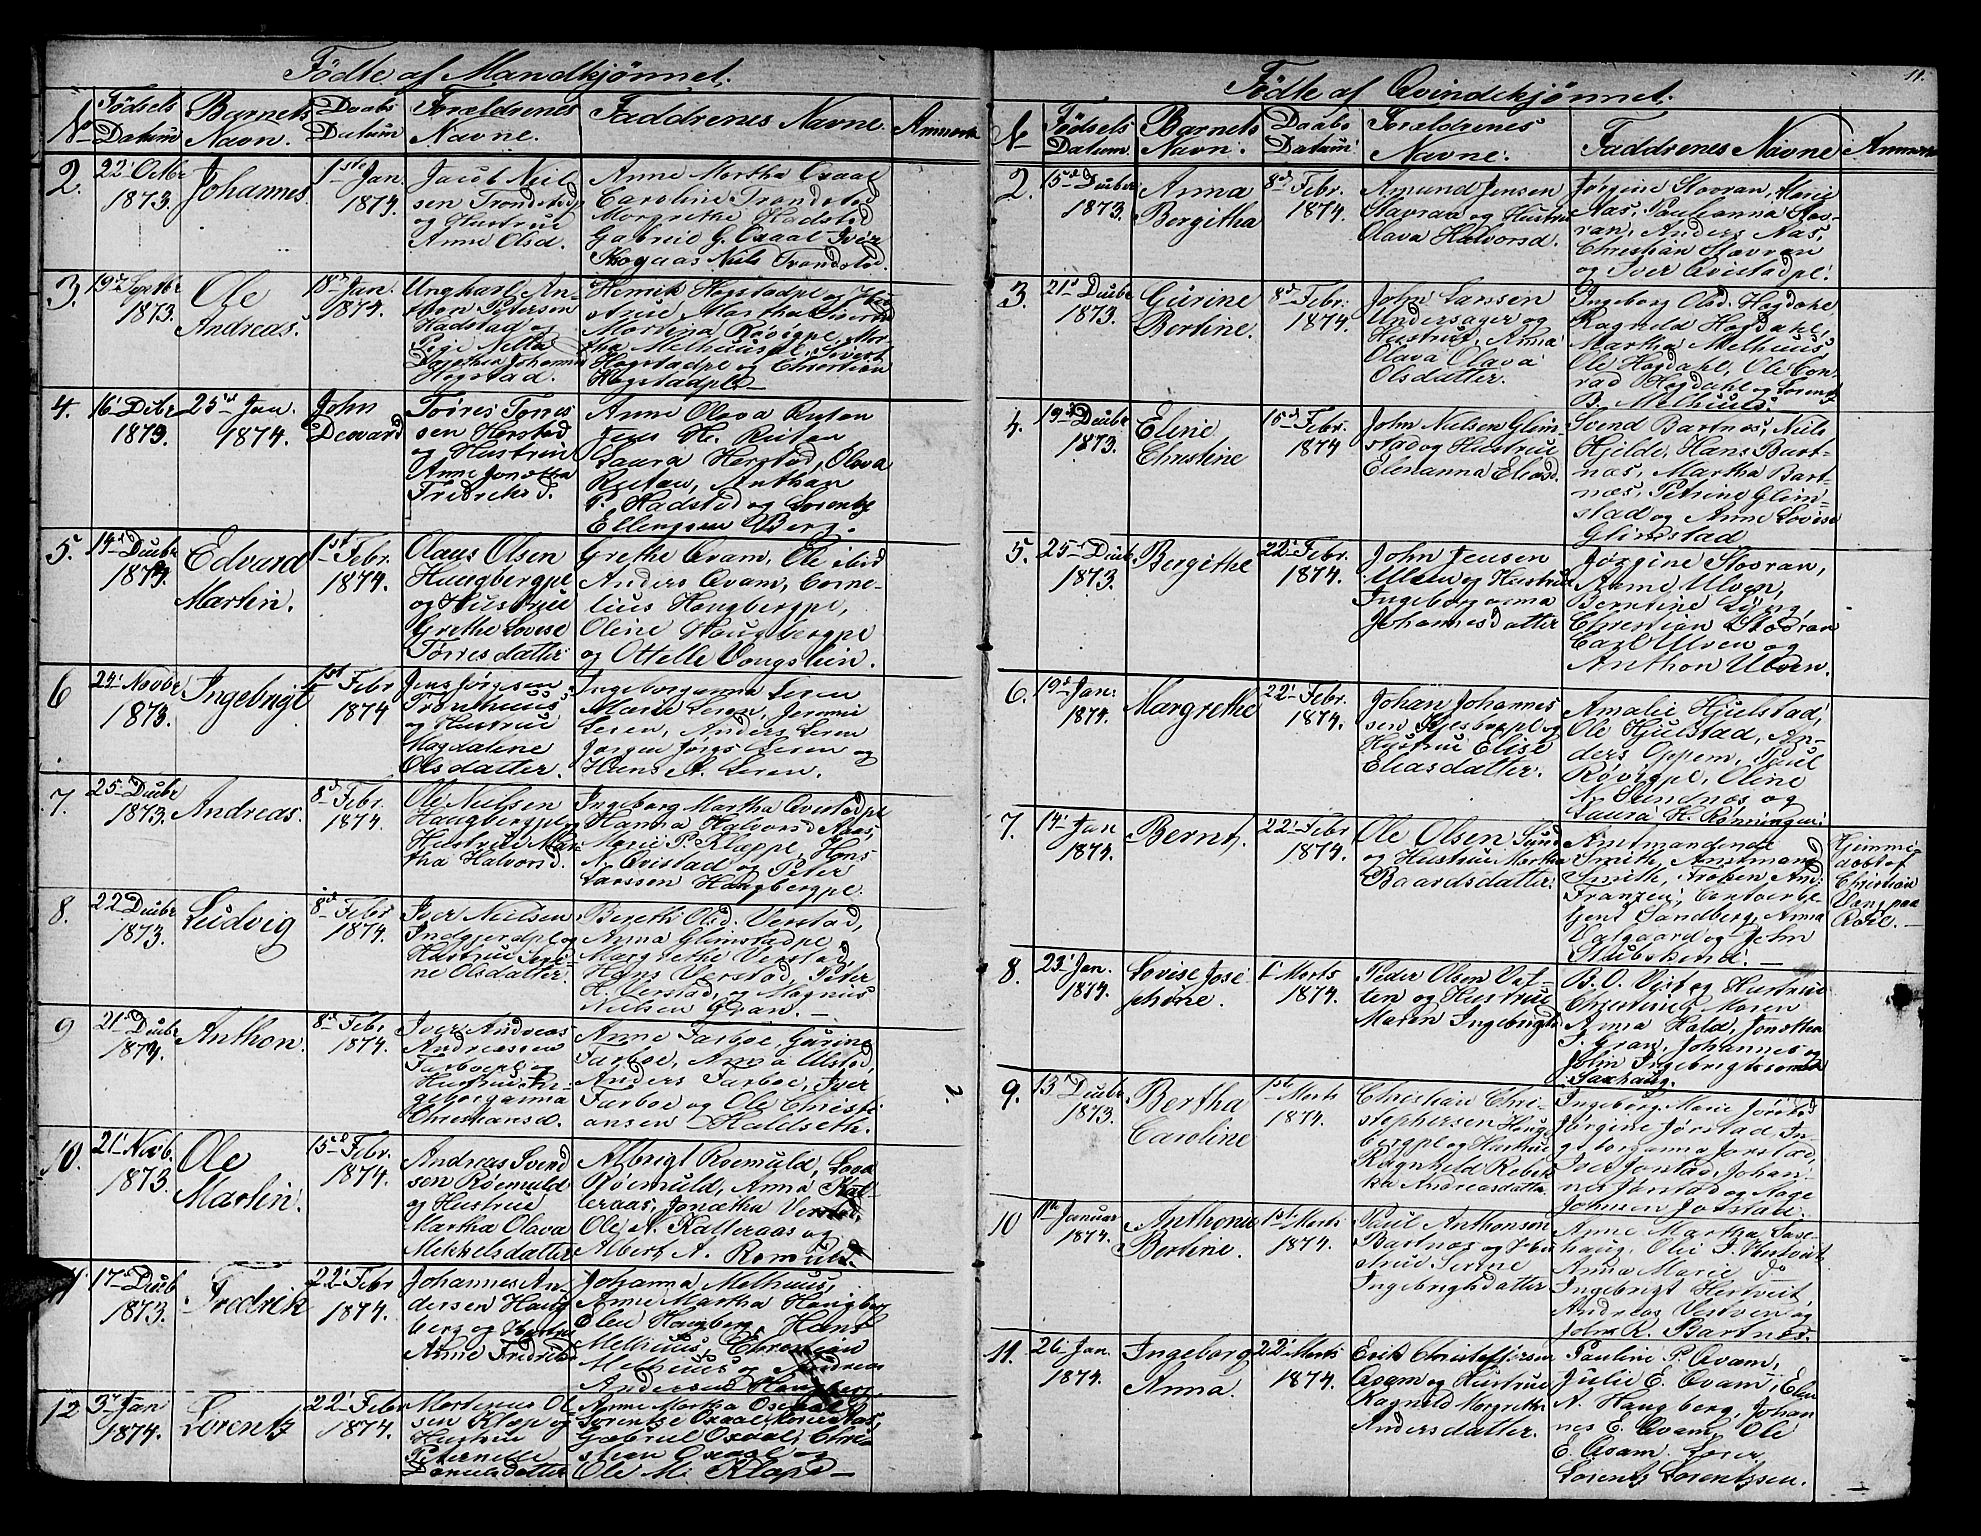 Fødte af Mandkjønnet.
No Fødsels Datum Barnets Navn. Daabs Datum Forældrenes Navne. Faddrenes Navne. Anmærk
2. 22' Octbr 1873. Johannes 1ste Jan. 1874.
Jacob Niel-
sen Trondstad
og Hustrue
Anne Olsd.
Anne Martha Oxaal
Caroline Trondstad
Margrethe Hadstad
Gabriel G. Oxaal Iver
Skogaas Niels Trondstad.
3. 19de Septbr 1873. Ole Andreas. 18de Jan. 1874.
Ungkarl An-
Petersen
Hadstad og
Pige Nella
Dorethea Johannsd
Hogstad.
Henrik Hogstadpl og
Anne Martha
Martina Røvigpl, Mar-
tha Melhuuspl, Sivert
Hogstadpl og Christian
Hogstadpl
4. 16' Debr 1873. 25de Jan. 1874. John Deovard
Tørres Tørres
sen Hestad
og Hustrue
Anne Jonetta
Fredriks D.
Anne Olava Ruten
Jens H. Ruten
Laura Herstad, Olava
Rutau, Anthon
P. Hadstad og Lorentz
Ellingsen Berg.
5. 14de Deubr 1873. Edvard Martin. 1ste Febr 1874.
Olaus Olsen
Haugbergpl
og Hustrue
Grethe Lovise
Tørresdatter
Grethe Qvam, Ole ibid
Anders Qvam, Corne-
lius Haugbergpl,
Oline Haugbergpl
og Ottelle Vongstein.
6 24' Novbr 1873. Ingebrigt 1ste Febr 1874
Jens Jørgsen
Tronhuus
og Hustrue
Magdalene
Olsdatter.
Ingeborganna Leren
Marie Leren, Jeremie
Leren, Anders Leren
Jørgen Jørgs Leren og
Hans A. Leren.
7. 25de Deubr 1873. Andreas. 8de Febr 1874.
Ole Nielsen
Haugbergpl og
Hustrue Mar-
tha Halvorsd.
Ingeborg Martha Qvistadpl
Hanna Halvorsd Aas,
Marie P. Klæppe, Hans
N. Qvistad og Peter
Larssen Haugbergpl.
8. 22' Deubr 1873. Ludvig 8de Febr 1874.
Iver Nielsen
Indgjerdpl og
Hustrue Seri-
ne Olsdatter.
Bereth Olsd. Verstad,
Anna Glimstadpl
Margrethe Verstad,
Hans Verstad, Peter
H. Verstad, og Magnus
Nielsen Gran. —
9 21de Deubr 1873. Anthon. 8de Febr 1874.
Iver Andreas
Andreassen
Farboepl og
Hustrue In-
geborganna
Christiansd.
Anne Farboe, Gurine
Farboe, Anna Ulstad,
Anders Farboe, Iver
Farboe og Ole Christi
ansen Haldseth.
10. 21' Novb. 1873. Ole Martin. 15de Febr. 1874.
Andreas Svend
sen Røemuld
og Hustrue
Martha Olava
Mekkelsdatter
Albrigt Roemuld, Lova
Røemuld, Anna Kal-
leraas, Jonetha Verstad,
Ole A. Kalleraas og
Albert A. Romuld.
11 17de Deub 1873. Fredrik 22' Febr 1874.
Johannes An-
dersen Haug
berg og Hustru
Anne Fredriksd
Johanna Melhuus,
Anne Martha Haugberg
Elen Haugberg, Hans
Melhuus, Christian
Melhuus og Andreas
Andersen Haugberg
12 3de Jan 1874. Lorentz 22' Febr 1874.
Martenus Ol-
sen Klop og
Hustrue
Peternelle
Danielsdatter
Anne Martha Oxaal
Lorentze Oxaal, Marie Aas,
Gabriel Oxaal, Chri-
stian Oxaal og
Ole M. Klop. —
Fødte af Qvindekjønnet. 11.
No Fødsels Datum. Barnets Navn. Daabs Datum. Forældrenes Navne. Faddrenes Navne Anmærk
2. 15de Deubr 1873. Anna Bergitha 8de Febr. 1874.
Amund Jensen
Stavran og Hustrue
Olava Halvorsd.
Jørgine Stovran, Marie
Aas, Paulianna Stov-
ran, Anders Aas,
Christian Stovran
og Iver Qvistadpl.
3. 21de Deubr 1873. Gurine Bertine. 8de Febr: 1874.
John Larsen
Undersager og
Hustrue, Anna
Olava Olava
Olsdatter.
Ingeborg Olsd. Hogdahl
Ragnild Hogdahl,
Martha Melhuus,
Ole Hogdahl, Ole Con-
rad Hogdahl og Lorents
B. Melhuus.
4. 19de Deubr 1873. Eline Christine 15de Febr. 1874
John Nielsen Glim-
stad og Hustrue
Elenanna Eliasd.
Svend Bartnes, Niels
Hjelde, Hans Bart-
næs, Martha Bart-
næs, Petrine Glim-
stad og Anne Lovise
Glimstad
5. 25de Deub. 1873. Bergithe 22' Febr. 1874.
John Jensen
Ulven og Hustrue
Ingeborganna
Johannesdatter
Jørgine Stovran,
Anne Ulven,
Berntine Ljøng,
Christian Stovran
Carl Ulven og
Anthon Ulven.
6. 19de Jan. 1874. Margrethe 22' Febr. 1874.
Johan Johannes
sen Hjesboppl og
Hustrue Elise
Eliasdatter.
Amalie Hjulstad,
Ole Hjulstad, An-
ders Oppem, Paul
Røvigpl, Oline
N. Sundnæs og
Laura H. Rønningen.
7. 14' Jan 1874. Bernt, 22' Febr 1874.
Ole Olsen Sund
og Hustrue Martha
Baardsdatter.
Amtmandinde
Smith, Amtmand
Smith, Frøken And
Franzen, Contoirbe-
tjent Sandberg, Anna
Valgaard og John
Staubskind. —
Hjemme-
døbt af
Christian
Vang paa
Røel. —
8. 23' Jan. 1874. Lovise Jose phine. 1' Marts 1874.
Peder Olsen Vat-
ten og Hustrue
Maren Ingebrigtsd
B. O. Vist og Hustrue
Christine Maren
Anna Hald, Jonetha
J. Gran, Johannes og
John Ingebrigtssønner
Saxhaug.
9. 13' Deubr 1873. Bertha Caroline 1ste Marts 1874.
Christian Chri-
stophersen Haug-
bergpl og Hustrue
Ragnhild Rebek-
ka Andreasdatter
Ingeborg Marie Jørstad
Jørgine Jørstad, In-
geborganna Jørstad,
Iver Jørstad Johan-
nes Jørstad og Aage
Johnsen Jørstad.
10 11te Januar 1874. Anthonie Bertine. 1ste Marts 1874.
Paul Anthonsen
Bartnæs og Hu-
strue Serine
Ingebrigtsdatter
Anne Martha Saxe-
haug, Ole J. Hertveit
Anna Marie do
Ingebrigt Hertveit,
Andreas Vestven og
John R. Bartnes.
11. 26' Jan. 1874. Ingeborg Anna. 22' Marts 1874.
Erik Christoffersen
Qvam og Hustrue
Ragnild Margrethe
Andersdatter.
Pauline P. Qvam,
Julie E. Qvam, Elen
N. Haugberg, Johan
nes E. Qvam, Ole
E. Qvam,
Lorentz Lorentzsen.